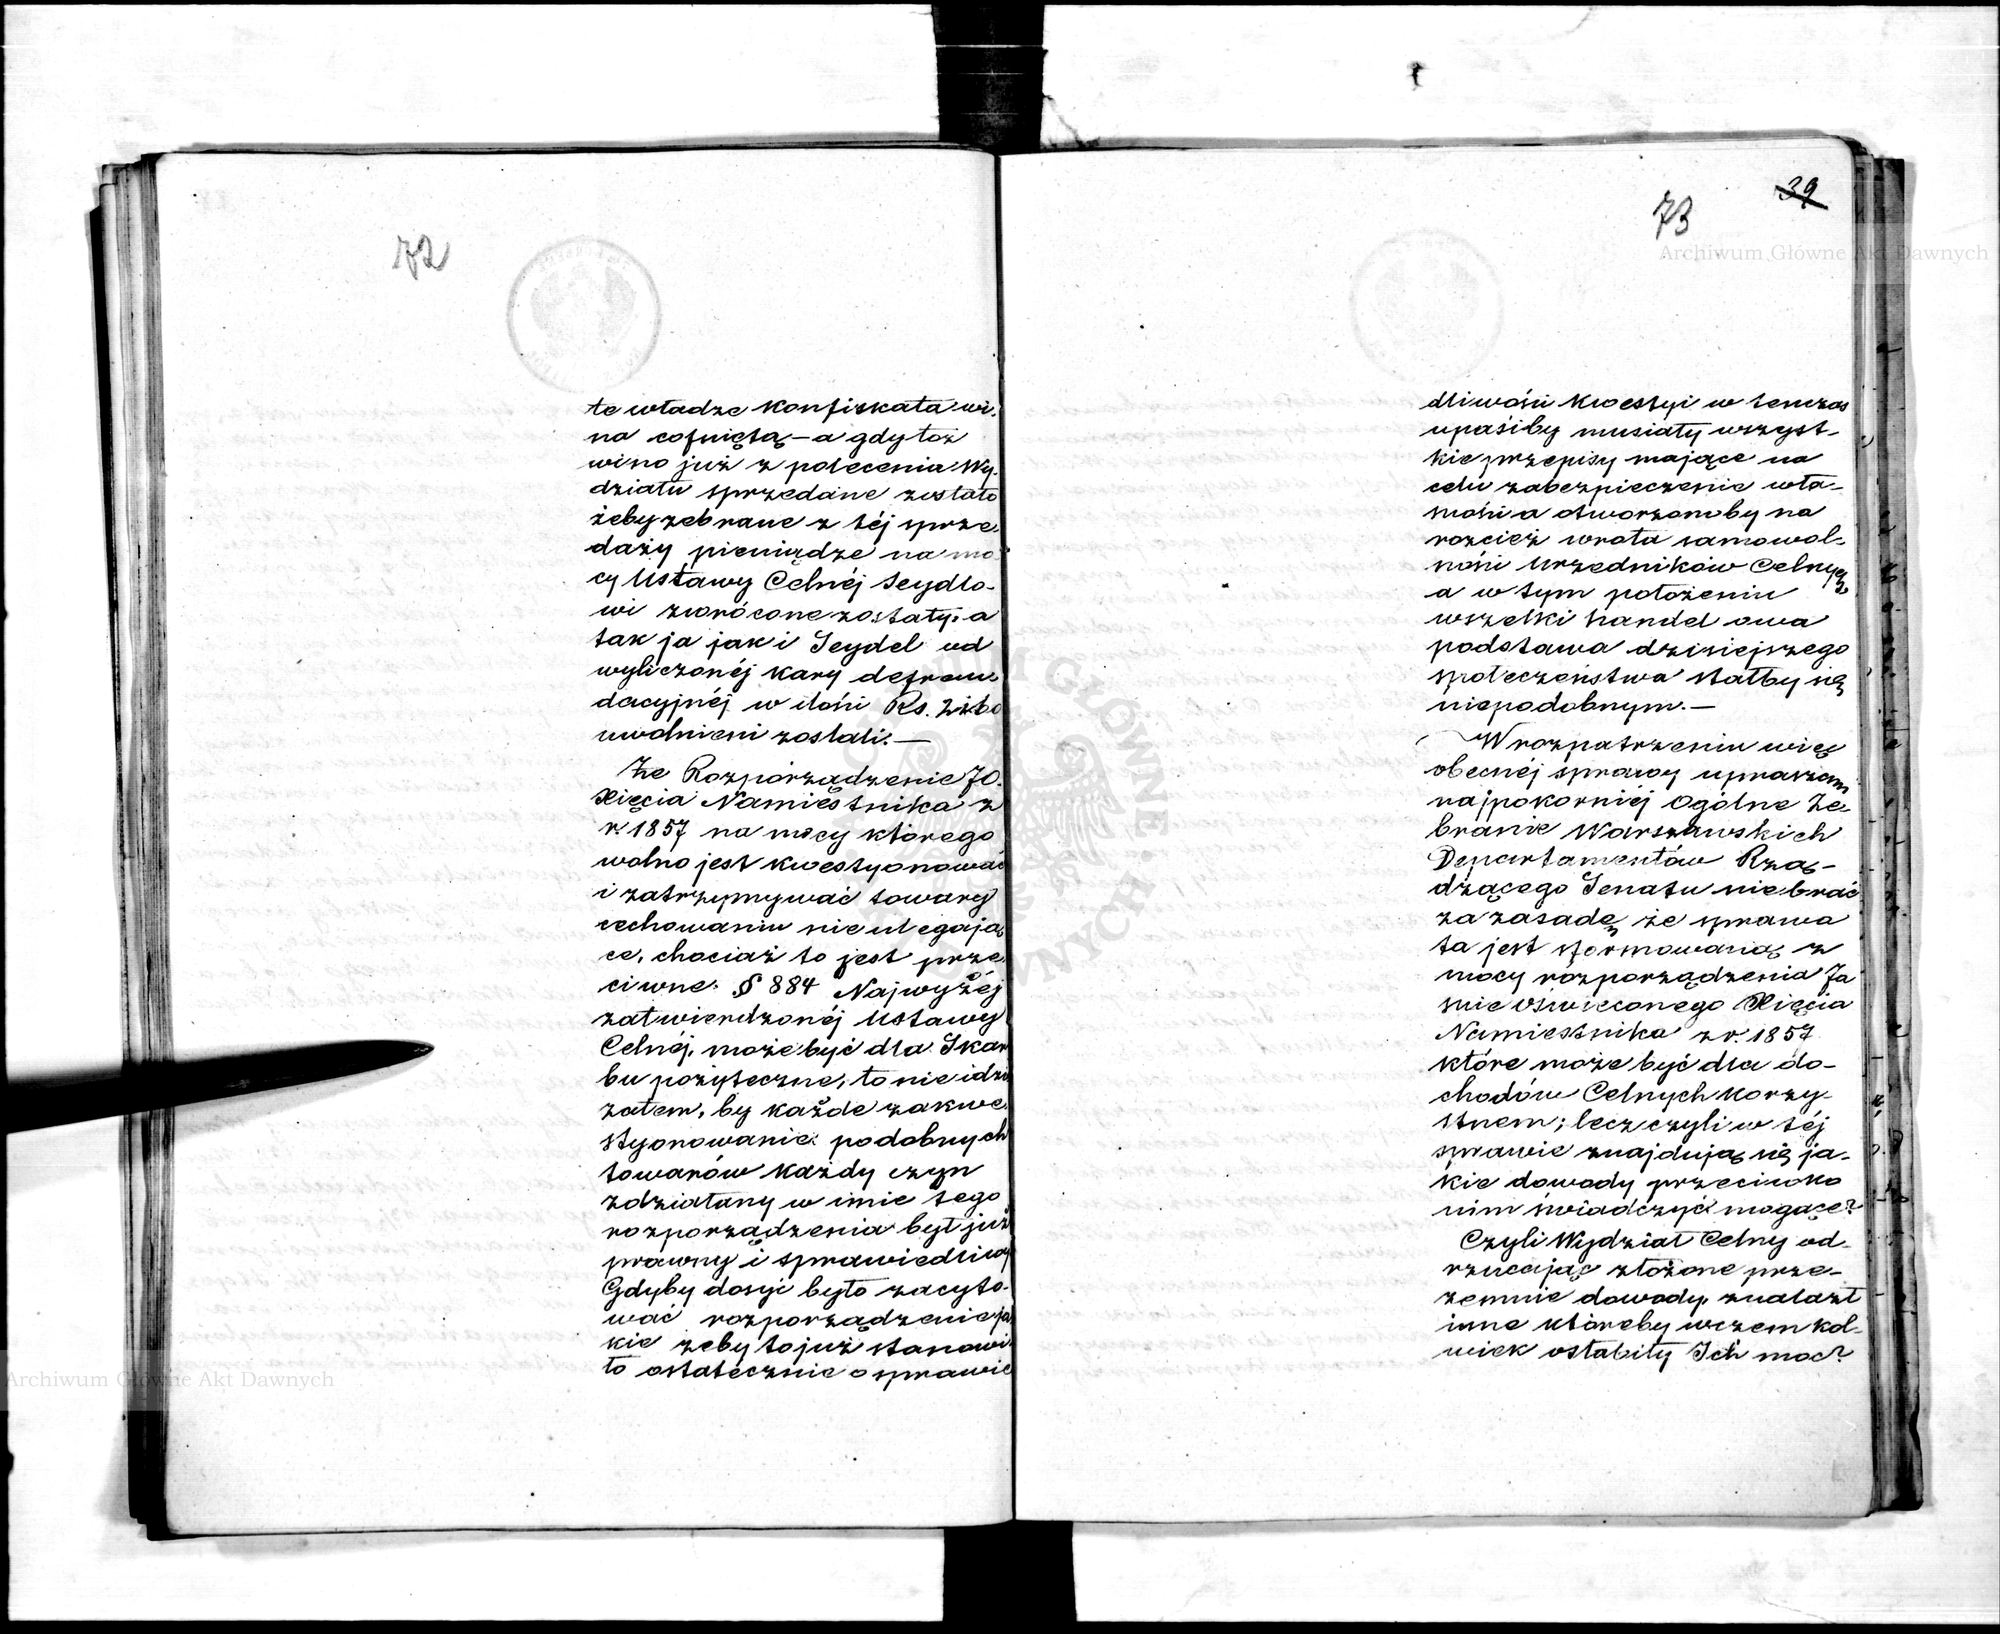 72
te władze konfiskata wi,
na cofniętą – a gdy toż
wino już z polecenia Wy,
działu sprzedane zostało
żeby zebrane z téj sprze,
daży pieniądze na mo
cy Ustawy Celnéj Seydlo-
wi zwrócone zostały, a
tak ja jak i Seydel od
wyliczonéj kary defrau,
dacyjnéj w ilości Rs.
uwolnieni zostali. —
Że Rozporządzenie JO.
Xięcia Namiestnika z
r. 1857 na mocy którego
wolno jest kwestyonować
i zatrzymywać towary
cechowaniu nie ulegają,
ce, chociaż to jest prze,
ciwne § 884 Najwyżéj
zatwierdzonéj Ustawy
Celnéj, może być dla Skar
bu pożyteczne, to nie idzie
zatem, by każde zakwe,
styonowanie podobnych
towarów każdy czyn
zdziałany w imie tego
rozporządzenia był już
prawny i sprawiedliwy
Gdyby dosyć było zacyto-
wać rozporządzenie ja
kie żeby to już stanowi,
ło ostatecznie o sprawie
39
73
dliwości kwestyi w tenczas
upaśćby musiały wszyst-
kie przepisy mające na
celu zabezpieczenie wła-
sności a otworzonoby na
rozcież wrota samowol-
ności Urzędników Celnych
a w tym położeniu
wszelki handel owa
podstawa dzisiejszego
społeczeństwa stałby się
niepodobnym. —
W rozpatrzeniu więc
obecnéj sprawy upraszam
najpokorniéj Ogólne Ze,
branie Warszawskich
Departamentów Rzą-
dzącego Senatu nie brać
za zasadę że sprawa
ta jest sformowaną z
mocy rozporządzenia Ja
śnie Oświeconego Xięcia
Namiestnika z r. 1857
które może być dla do-
chodów Celnych korzy-
stnem; lecz czyli w téj
sprawie znajdują się ja-
kie dowody przeciwko
nim świadczyć mogące?
Czyli Wydział Celny od-
rzucając złożone prze-
zemnie dowody, znalazł
inne któreby wczem kol-
wiek osłabiły Ich moc?
Archiwum Główne Akt Dawnych
Archiwum Główne Akt Dawnych